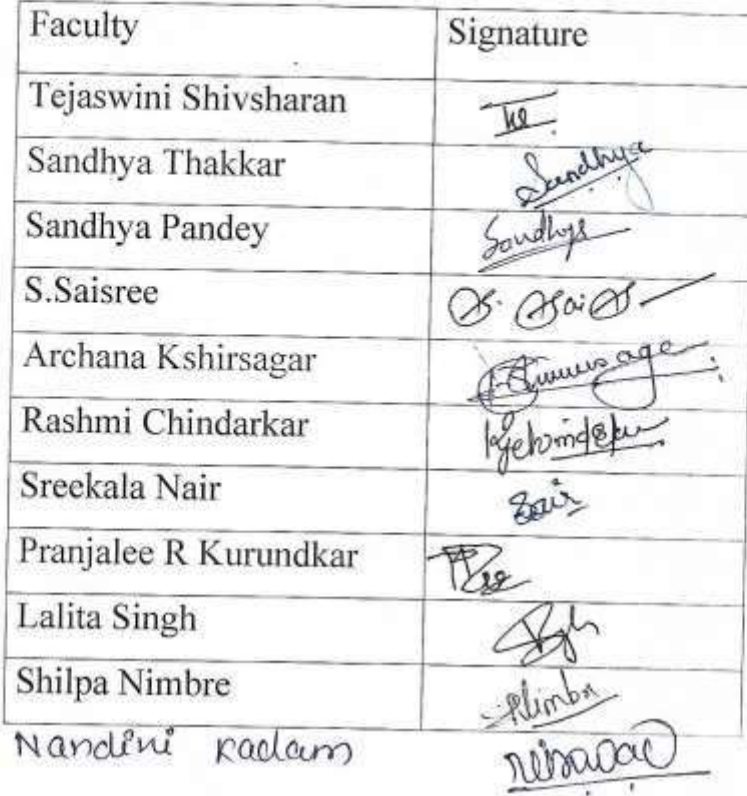 Faculty Signature
Tejaswini Shivsharan
Sandhya Thakkar Sandhya
Sandhya Pandey Sandhya
S.Saisree S. Sai S
Archana Kshirsagar
Rashmi Chindarkar
Sreekala Nair
Pranjalee R Kurundkar
Lalita Singh
Shilpa Nimbre
Nandini Kadam